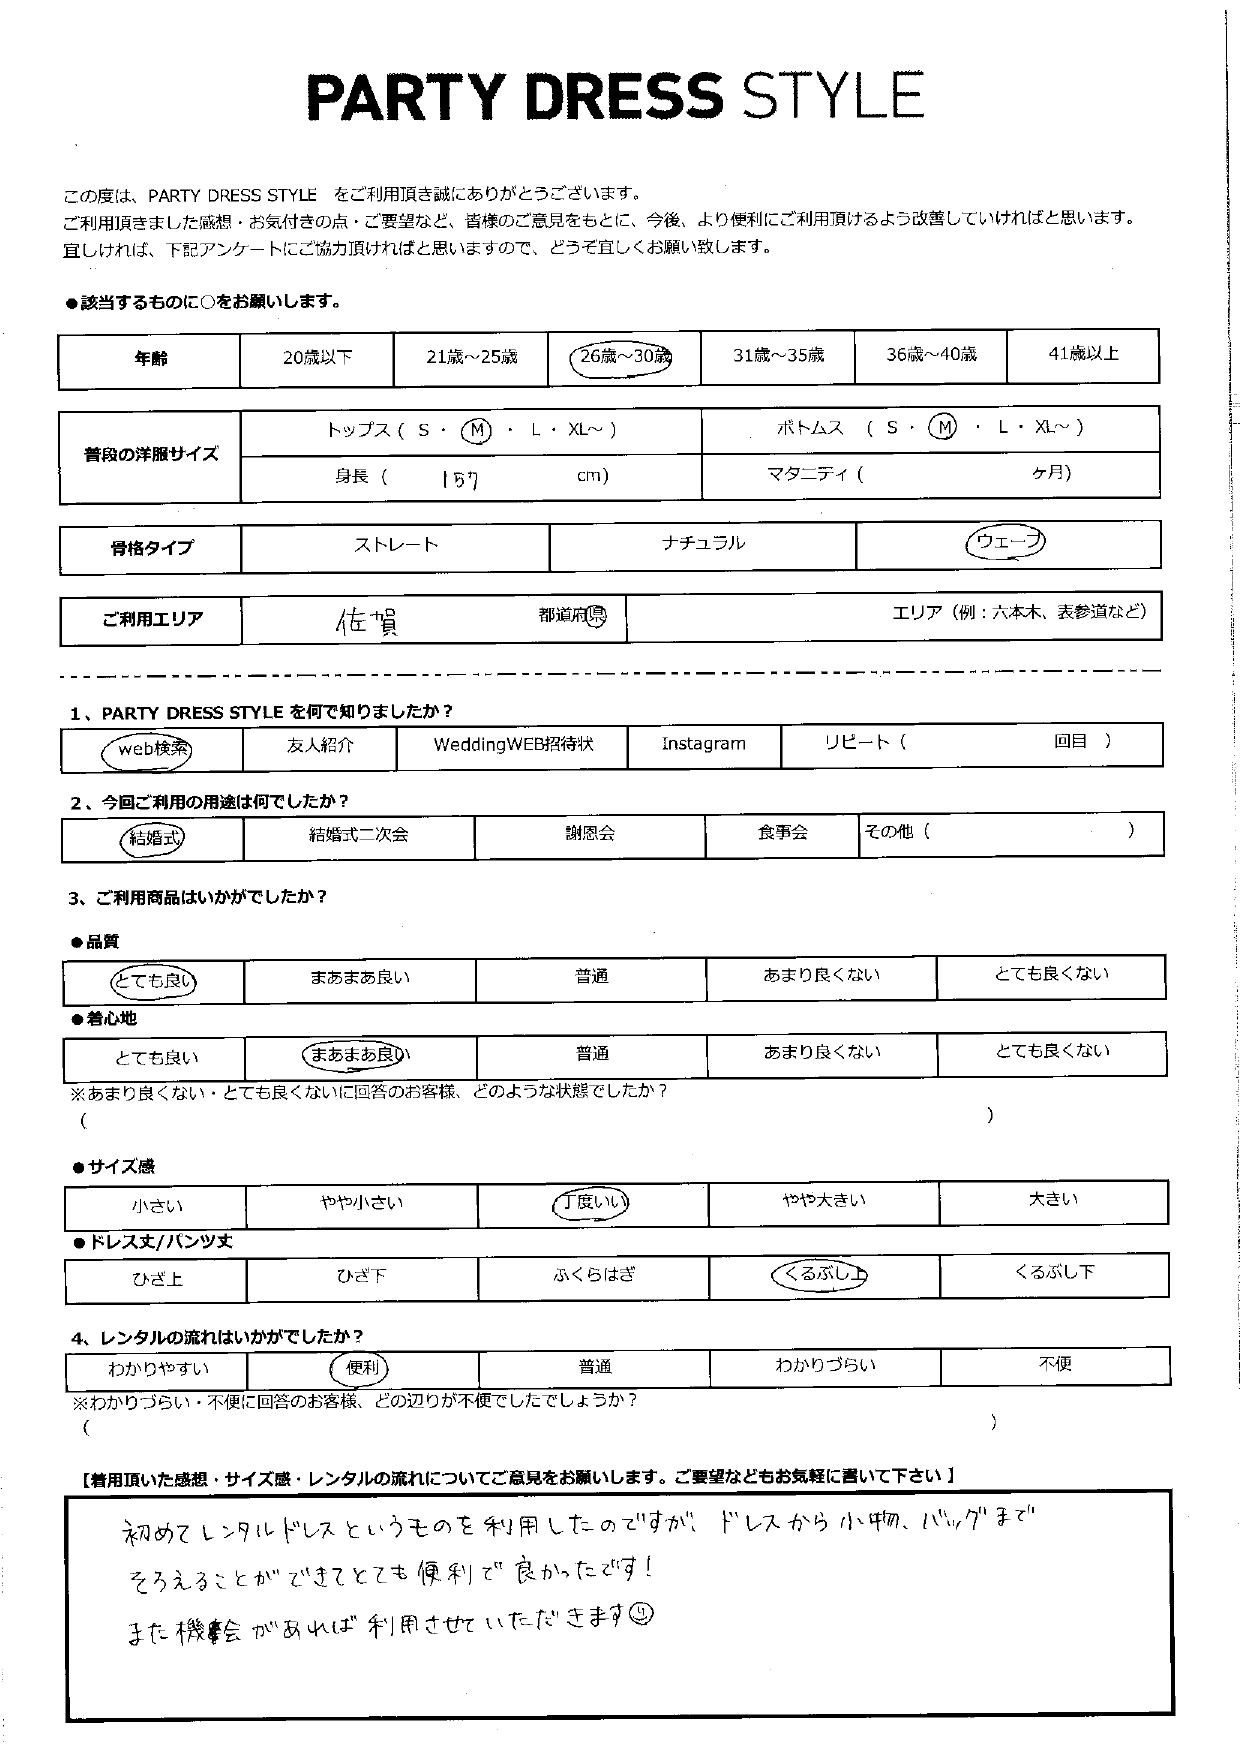 PARTY DRESS STYLE
この度は、PARTY DRESS STYLE をご利用頂き誠にありがとうございます。
ご利用頂きました感想・お気付きの点・ご要望など、皆様のご意見をもとに、今後、より便利にご利用頂けるよう改善していければと思います。
宜しければ、下記アンケートにご協力頂ければと思いますので、どうぞ宜しくお願い致します。
●該当するものに○をお願いします。
年齢 20歳以下 21歳～25歳 26歳～30歳 31歳～35歳 36歳～40歳 41歳以上
普段の洋服サイズ トップス ( S ・ M ・ L ・ XL～ ) ボトムス ( S ・ M ・ L ・ XL～ )
身長 ( 157 cm) マタニティ ( ヶ月)
骨格タイプ ストレート ナチュラル ウェーブ
ご利用エリア 佐賀 都道府県 エリア（例：六本木、表参道など）
1、PARTY DRESS STYLE を何で知りましたか？
web検索 友人紹介 WeddingWEB招待状 Instagram リピート ( 回目 )
2、今回ご利用の用途は何でしたか？
結婚式 結婚式二次会 謝恩会 食事会 その他 ( )
3、ご利用商品はいかがでしたか？
●品質
とても良い まあまあ良い 普通 あまり良くない とても良くない
●着心地
とても良い まあまあ良い 普通 あまり良くない とても良くない
※あまり良くない・とても良くないに回答のお客様、どのような状態でしたか？
( )
●サイズ感
小さい やや小さい 丁度いい やや大きい 大きい
●ドレス丈/パンツ丈
ひざ上 ひざ下 ふくらはぎ くるぶし上 くるぶし下
4、レンタルの流れはいかがでしたか？
わかりやすい 便利 普通 わかりづらい 不便
※わかりづらい・不便に回答のお客様、どの辺りが不便でしたでしょうか？
( )
【着用頂いた感想・サイズ感・レンタルの流れについてご意見をお願いします。ご要望などもお気軽に書いて下さい 】
初めてレンタルドレスというものを利用したのですが、ドレスから小物、バッグまで
そろえることができてとても便利で良かったです！
また機会があれば利用させていただきます